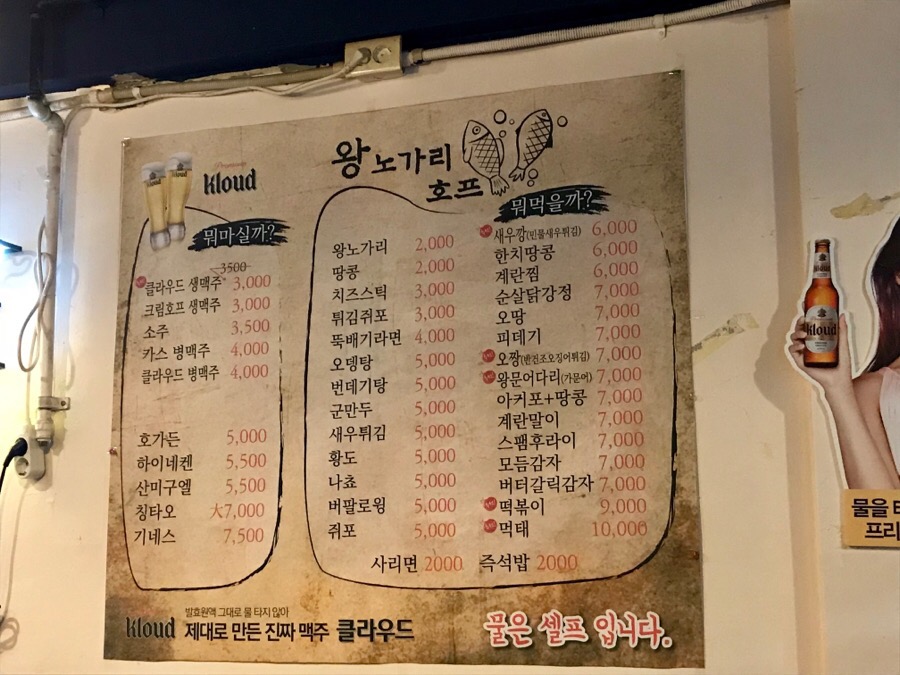 Premium
Kloud
왕노가리
호프
뭐마실까?
3500
클라우드 생맥주 3,000
크림호프 생맥주 3,000
소주 3,500
카스 병맥주 4,000
클라우드 병맥주 4,000
호가든 5,000
하이네켄 5,500
산미구엘 5,500
칭타오 大7,000
기네스 7,500
왕노가리 2,000
땅콩 2,000
치즈스틱 3,000
튀김쥐포 3,000
뚝배기라면 4,000
오뎅탕 5,000
번데기탕 5,000
군만두 5,000
새우튀김 5,000
황도 5,000
나쵸 5,000
버팔로윙 5,000
쥐포 5,000
뭐먹을까?
새우깡(민물새우튀김) 6,000
한치땅콩 6,000
계란찜 6,000
순살닭강정 7,000
오땅 7,000
피데기 7,000
오짱(반건조오징어튀김) 7,000
왕문어다리(가문어) 7,000
아귀포+땅콩 7,000
계란말이 7,000
스팸후라이 7,000
모듬감자 7,000
버터갈릭감자 7,000
떡볶이 9,000
먹태 10,000
사리면 2000 즉석밥 2000
발효원액 그대로 물 타지 않아
Kloud 제대로 만든 진짜 맥주 클라우드
물은 셀프 입니다.
Kloud
물을
프리